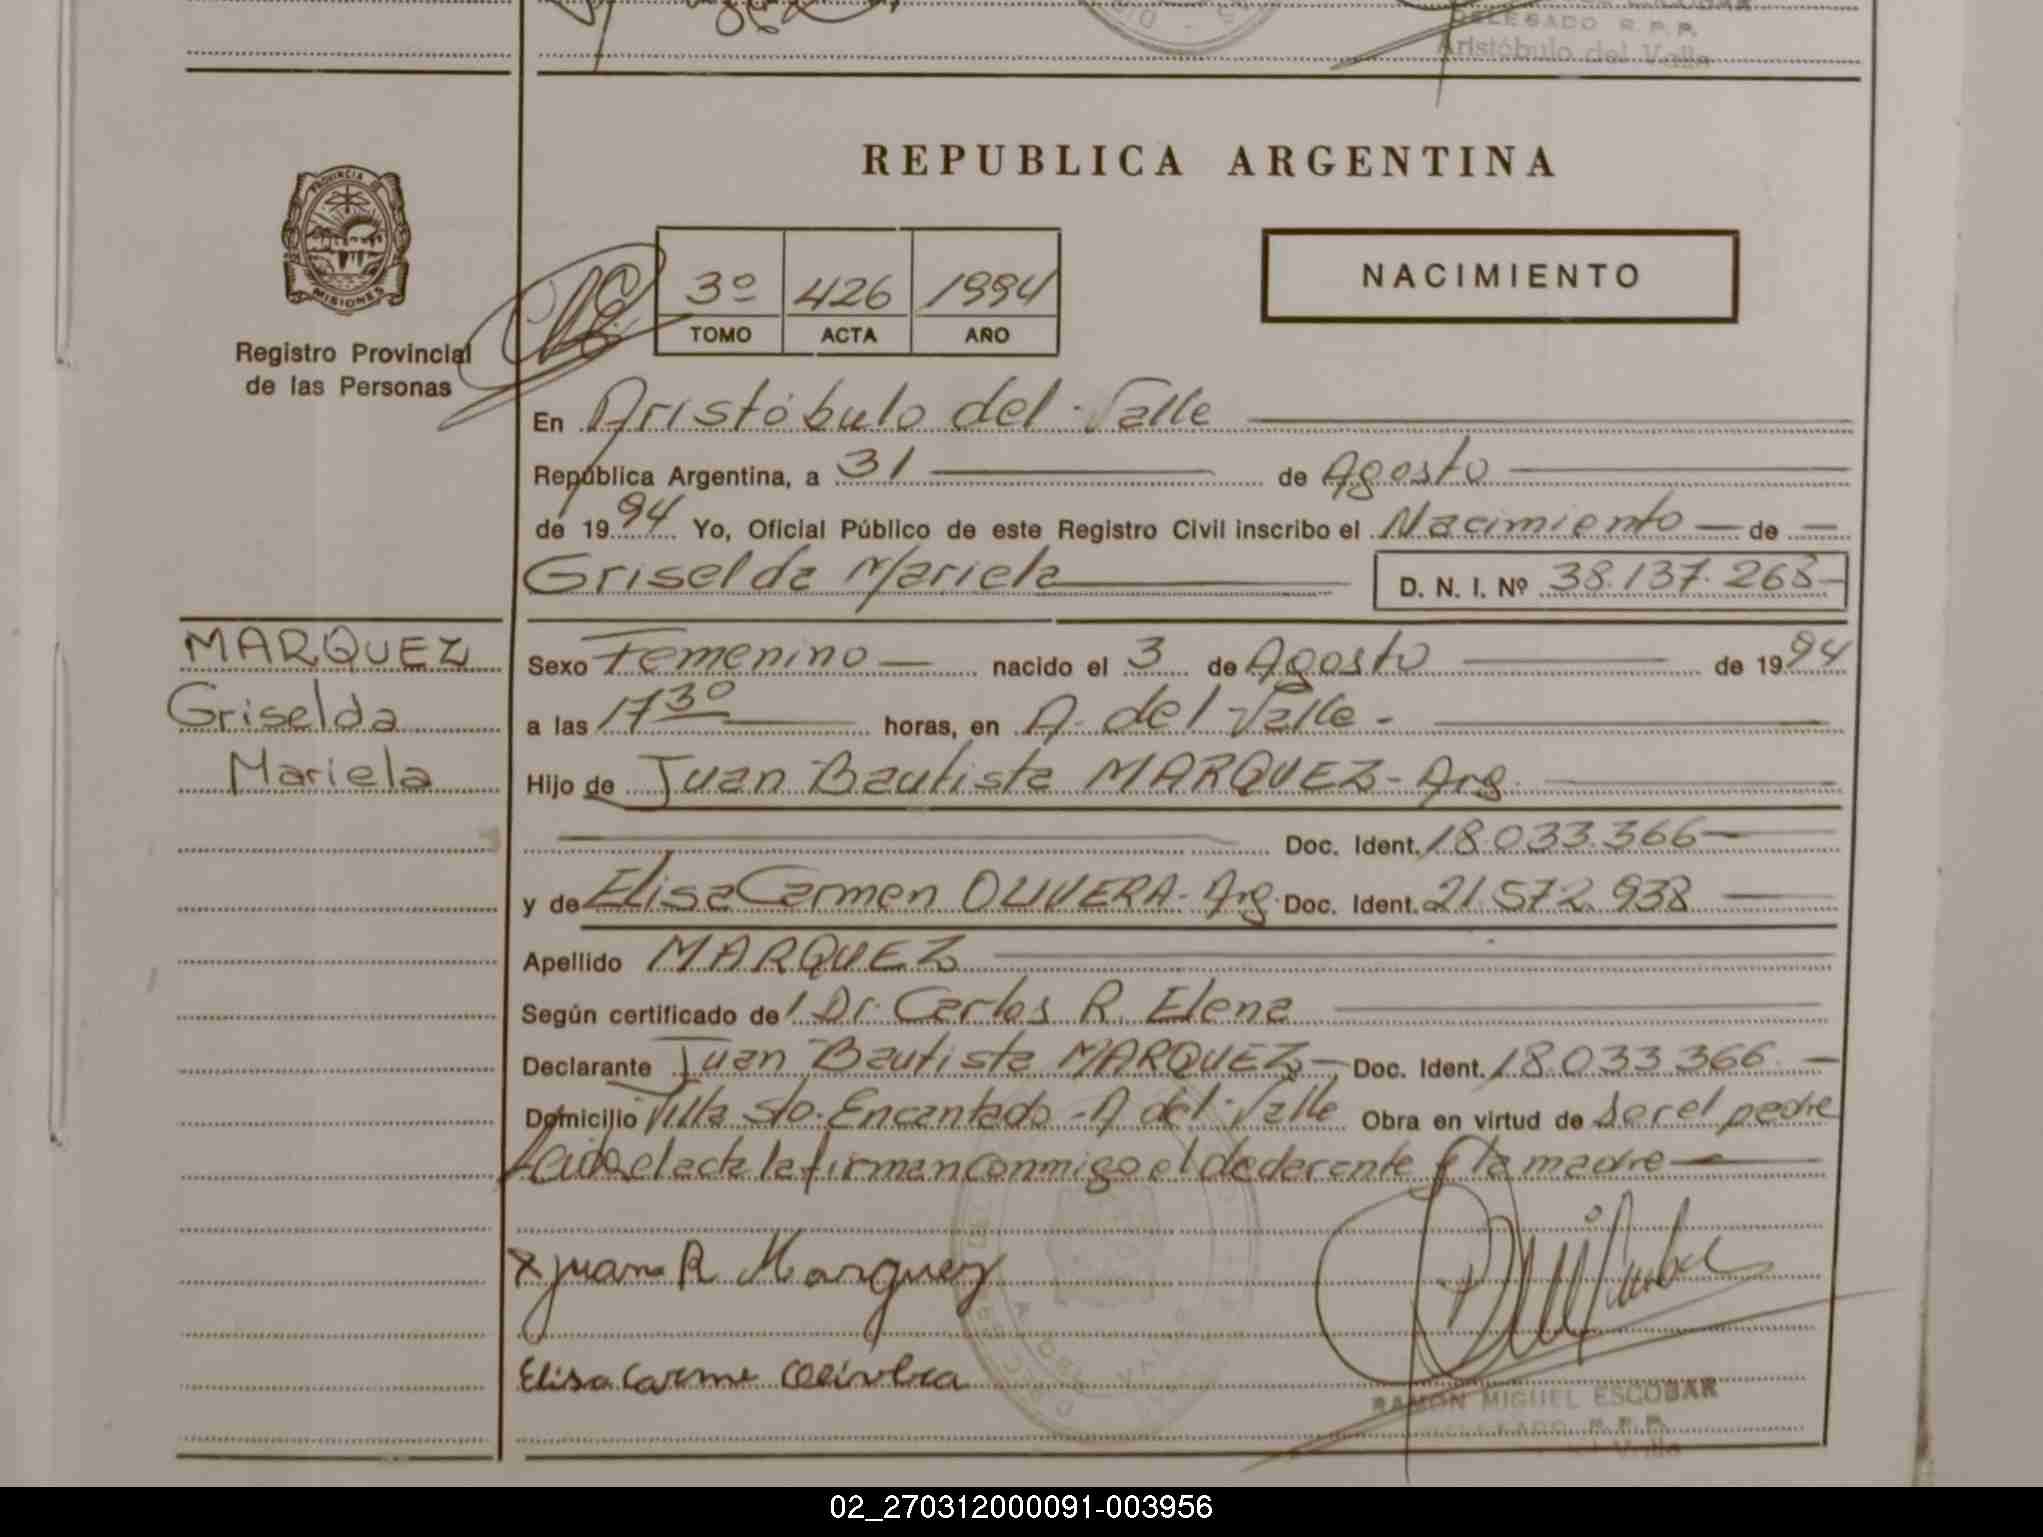 DELEGADO R.P.P.
Aristóbulo del Valle
REPUBLICA ARGENTINA
PROVINCIA DE
MISIONES
Registro Provincial
de las Personas
3º 426 1994
TOMO ACTA AÑO
NACIMIENTO
En Aristóbulo del Valle
República Argentina, a 31 de Agosto
de 1994 Yo, Oficial Público de este Registro Civil inscribo el Nacimiento de
Griselda Mariela D. N. I. Nº 38.137.268
MARQUEZ
Griselda
Mariela
Sexo Femenino nacido el 3 de Agosto de 1994
a las 17 30 horas, en A. del Valle.
Hijo de Juan Bautista MARQUEZ - Arg.
Doc. Ident. 18.033.366
y de Elisa Carmen OLIVERA - Arg. Doc. Ident. 21.572.938
Apellido MARQUEZ
Según certificado de l Dr. Carlos R. Elena
Declarante Juan Bautista MARQUEZ Doc. Ident. 18.033.366
Domicilio Villa Sto. Encantado - A del Valle Obra en virtud de ser el padre
Leida el acta la firman conmigo el declarante y la madre
x Juan R Marquez
Elisa Carme Olivera
RAMON MIGUEL ESCOBAR
DELEGADO R.P.P.
del Valle
02_270312000091-003956